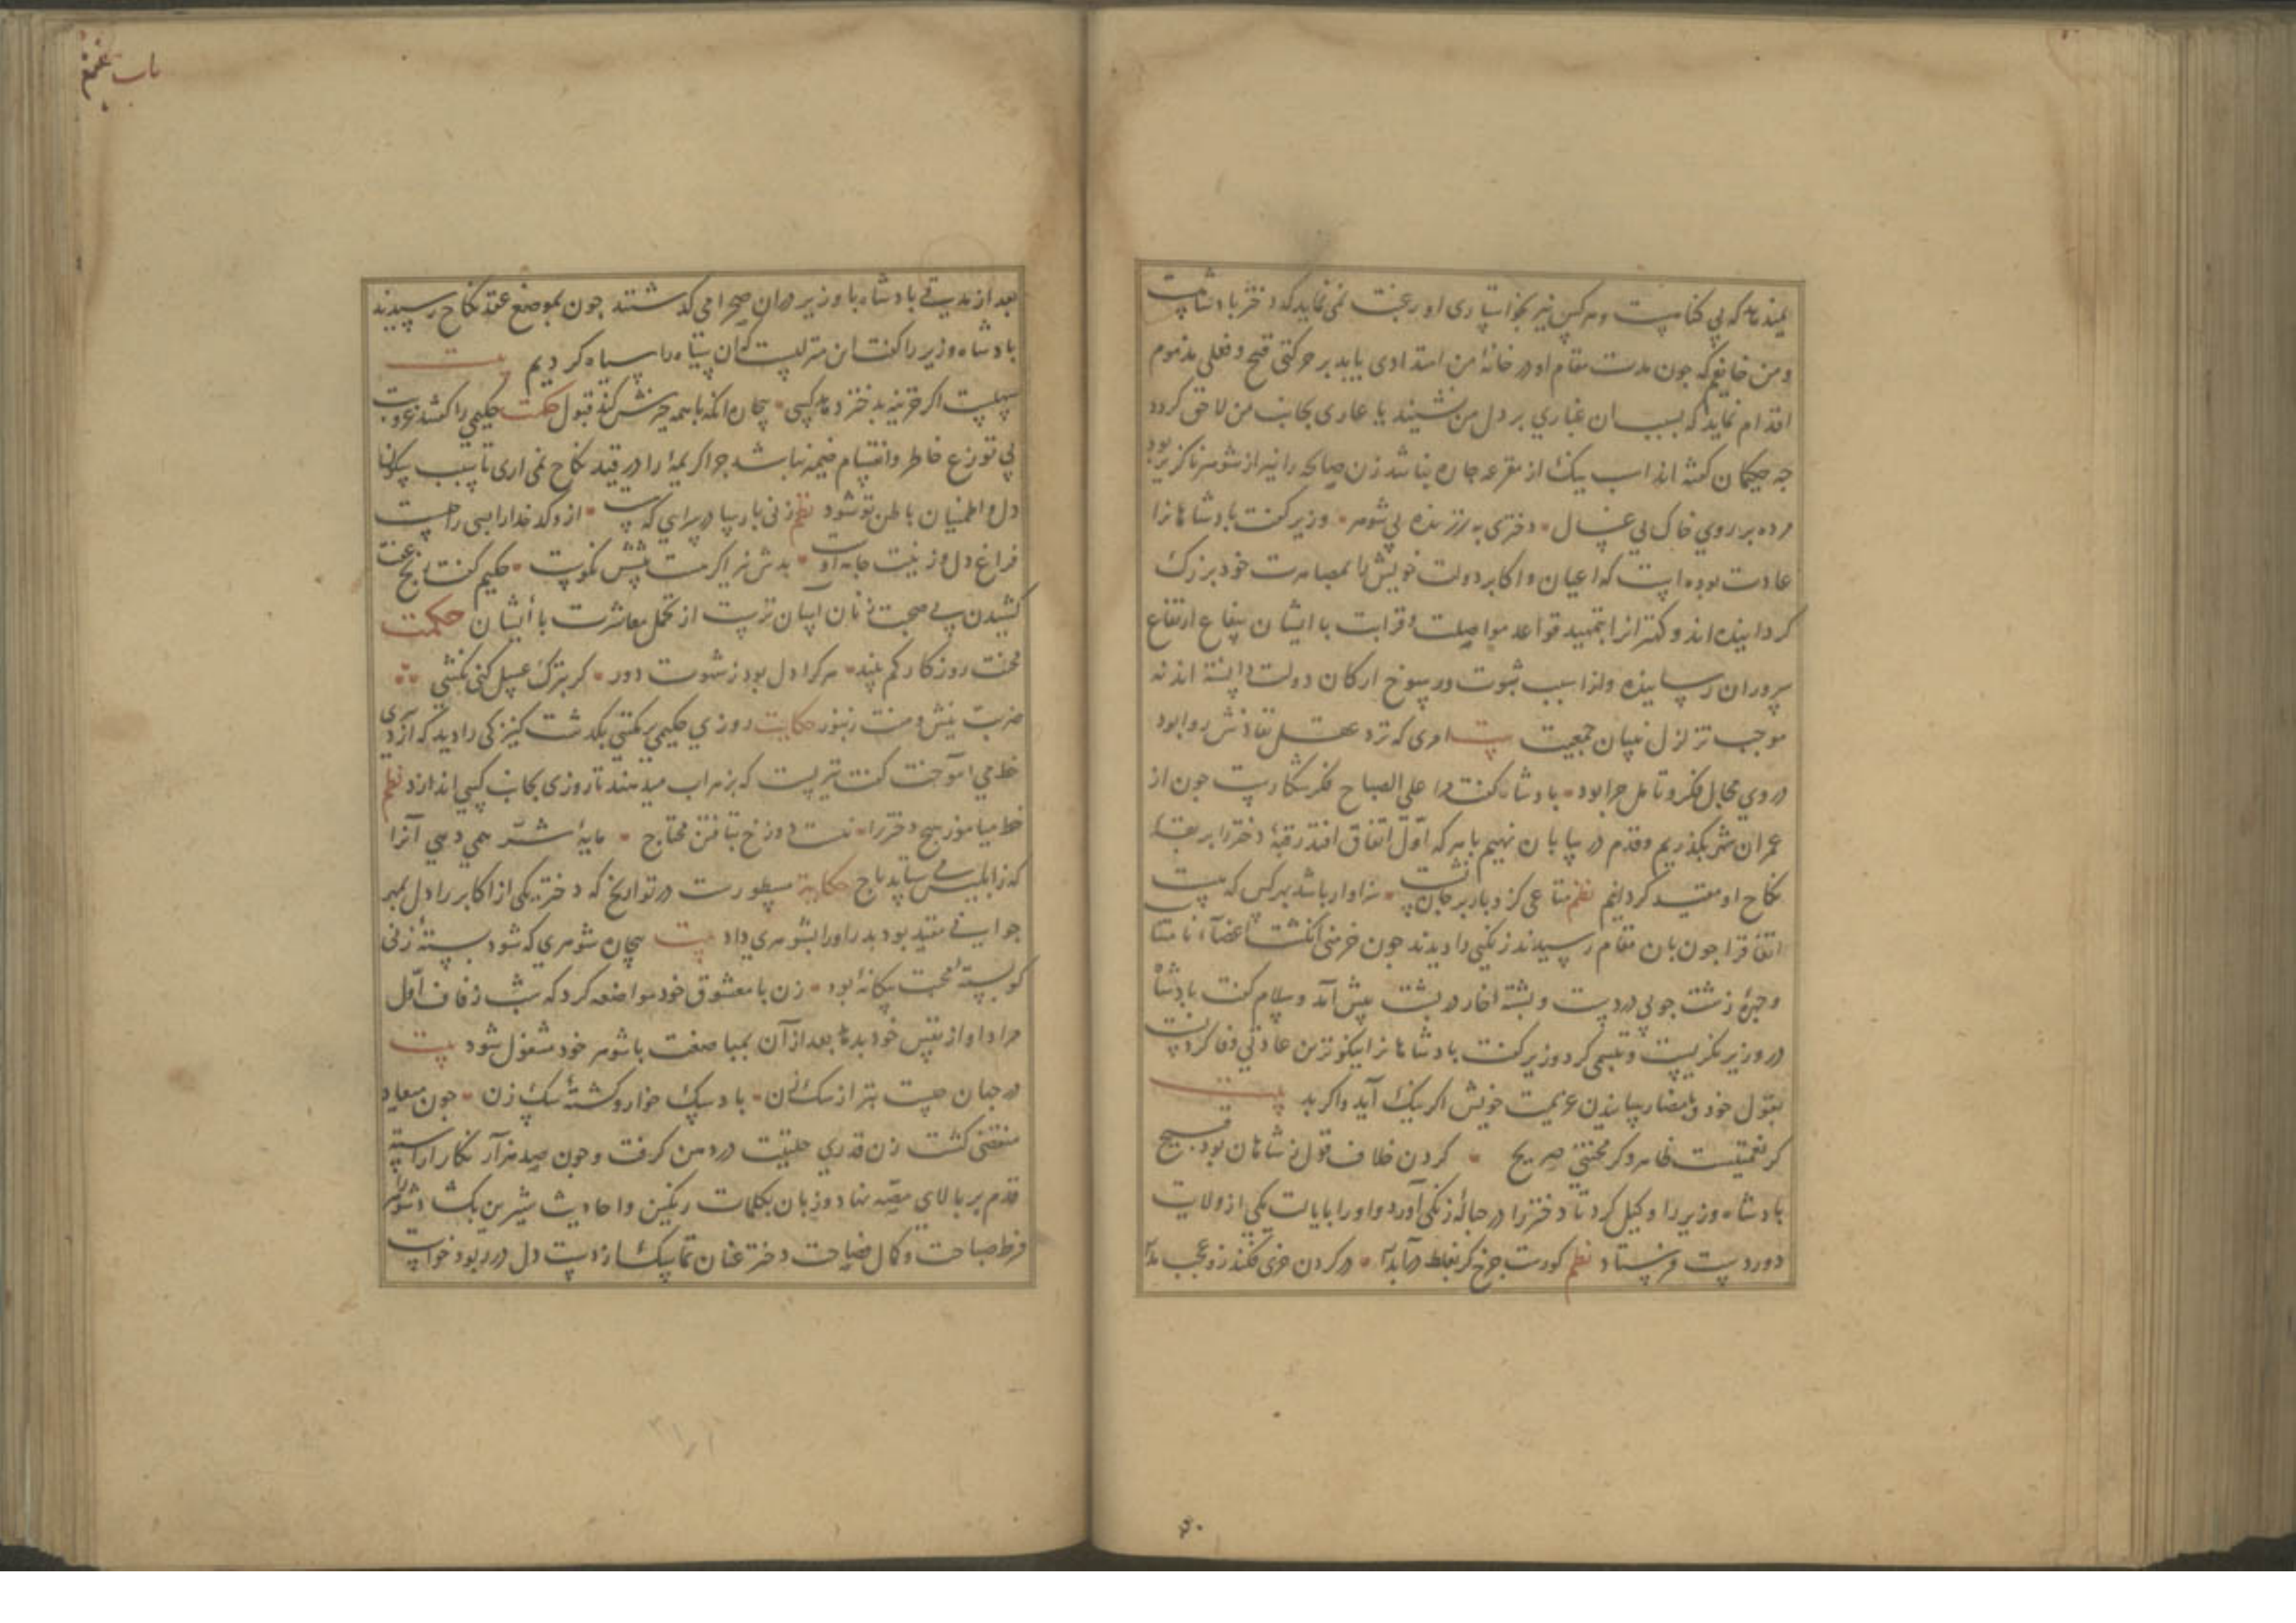 نمیدهد که بی کفاست و هرکس نیز بخواستاری او رغبت نمی‌نماید که دختر بادشاهست
و من خایفم که جون مدت مقام او در خانهٔ من امتدادی یابد بر حرکتی قبیح و فعلی مذموم
اقدام نماید که بسبب ان غباری بر دل من نشیند یا عاری بجانب من لاحق کردد
جه حکیمان کفته اند اسب نیک از مقرعه جاره نباشد زن صالحه را نیز از شوهر ناکزیر بود
مرده بر روی خاک بی غسال • دختری به زنده بی شوهر • وزیر کفت بادشاهانرا
عادت بوده است که اعیان و اکابر دولت خویش را بمصاهرت خود بزرک
کردانیده اند و کهترانرا بتمهید قواعد مواصلت و قرابت با ایشان بیفاع ارتفاع
سروران رسانیده و انرا سبب ثبوت و رسوخ ارکان دولت دانسته اند نه
موجب تزلزل بنیان جمعیت بیت امری که نزد عقل نفاذش روا بود
در وی مجال فکر و تامل جرا بود • بادشاه کفت مرا علی الصباح فکر شکارست جون از
عمران شهر بکذریم و قدم در بیابان نهیم با هر که اول اتفاق افتد رقبهٔ دختر را بربقهٔ
نکاح او مقید کردانیم نظم متاعی کزو بار بر جان تست • سزاوار باشد بهر کس که هست
اتفاقرا جون بان مقام رسیدند زنکیی را دیدند جون خرمنی انکشت اعضاء نامتناسب
و جهرهٔ زشت جوبی در دست و بشتهٔ خار در بشت بیش آمد و سلام کفت بادشاه
در وزیر نکریست و تبسمی کرد وزیر کفت بادشاهانرا نیکوترین عادتی وفا کردنست
بقول خود و بامضا رسانیدن عزیمت خویش اکر نیک آید و اکر بد بیت
کر نعمتیست ظاهر و کر محنتی صریح • کردن خلاف قول ز شاهان بود قبیح
بادشاه وزیر را وکیل کرد تا دختر را در حبالهٔ زنکی آورد و او را بایالت یکی از ولایات
دور دست فرستاد نظم کورست جرخ کر بغلط در آبدار • در کردن خری فکند زو عجب مدار
باب هفتم
بعد از مدتی بادشاه با وزیر دران صحرا می کذشتند جون بموضع عقد نکاح رسیدند
بادشاه وزیر را کفت این منزلیست که آن سیاه را سیاه کردیم بیت
سهلست اکر خزینه بدختر دهد کسی • بیجاره انکه با همه خرش کند قبول حکمت حکیمی را کفتند عزوبت
بی توزع خاطر و انقسام ضمیر نباشد جرا کریمهٔ را در قید نکاح نمی اری تا سبب سکون
دل و اطمینان باطن تو شود نظم زنی بارسا در سرایی که هست • ازو کدخدا را بسی راحتست
فراغ دل و زینت جامه او • بدش نیز اکر هست بیش نکوست • حکیم کفت رنج عفت
کشیدن بی صحبت زنان اسان ترست از تحمل معاشرت با ایشان حکمت
محنت روزکار کم بیند • هرکرا دل بود ز شهوت دور • کر بترک عسل کنی نکشی
ضربت نیش و منت زنبور حکایت روزی حکیمی بر مکتبی بکذشت کنیزکی را دید که از دبیری
خط می آموخت کفت تیریست که بزهراب میدهند تا روزی بجانب کسی اندازد نظم
خط میاموز هیچ دختر را • نیست دوزخ بتافتن محتاج • مایهٔ شر همی دهی آنرا
که ز ابلیس می ستاند باج حکایة مسطورست در تواریخ که دختر یکی از اکابر را دل بمهر
جوانی مقید بود بدر او را بشوهری داد بیت بیجاره شوهری که شود بستهٔ زنی
کو بستهٔ محبت بیکانهٔ بود • زن با معشوق خود مواضعه کرد که شب زفاف اول
مراد او از نفس خود بدهد بعد از آن بمباضعت با شوهر خود مشغول شود بیت
در جهان جیست بتر از سک آن • باد سک خوار و کشتهٔ سک زن • جون میعاد
منقضی کشت زن قدری حلتیت در دهن کرفت و جون صد هزار نکار اراسته
قدم بر بالای منصه نهاد و زبان بکلمات رنکین و احادیث شیرین بکشاد شوهر را
فرط صباحت و کمال فصاحت دختر عنان تماسک از دست دل در ربود خواست